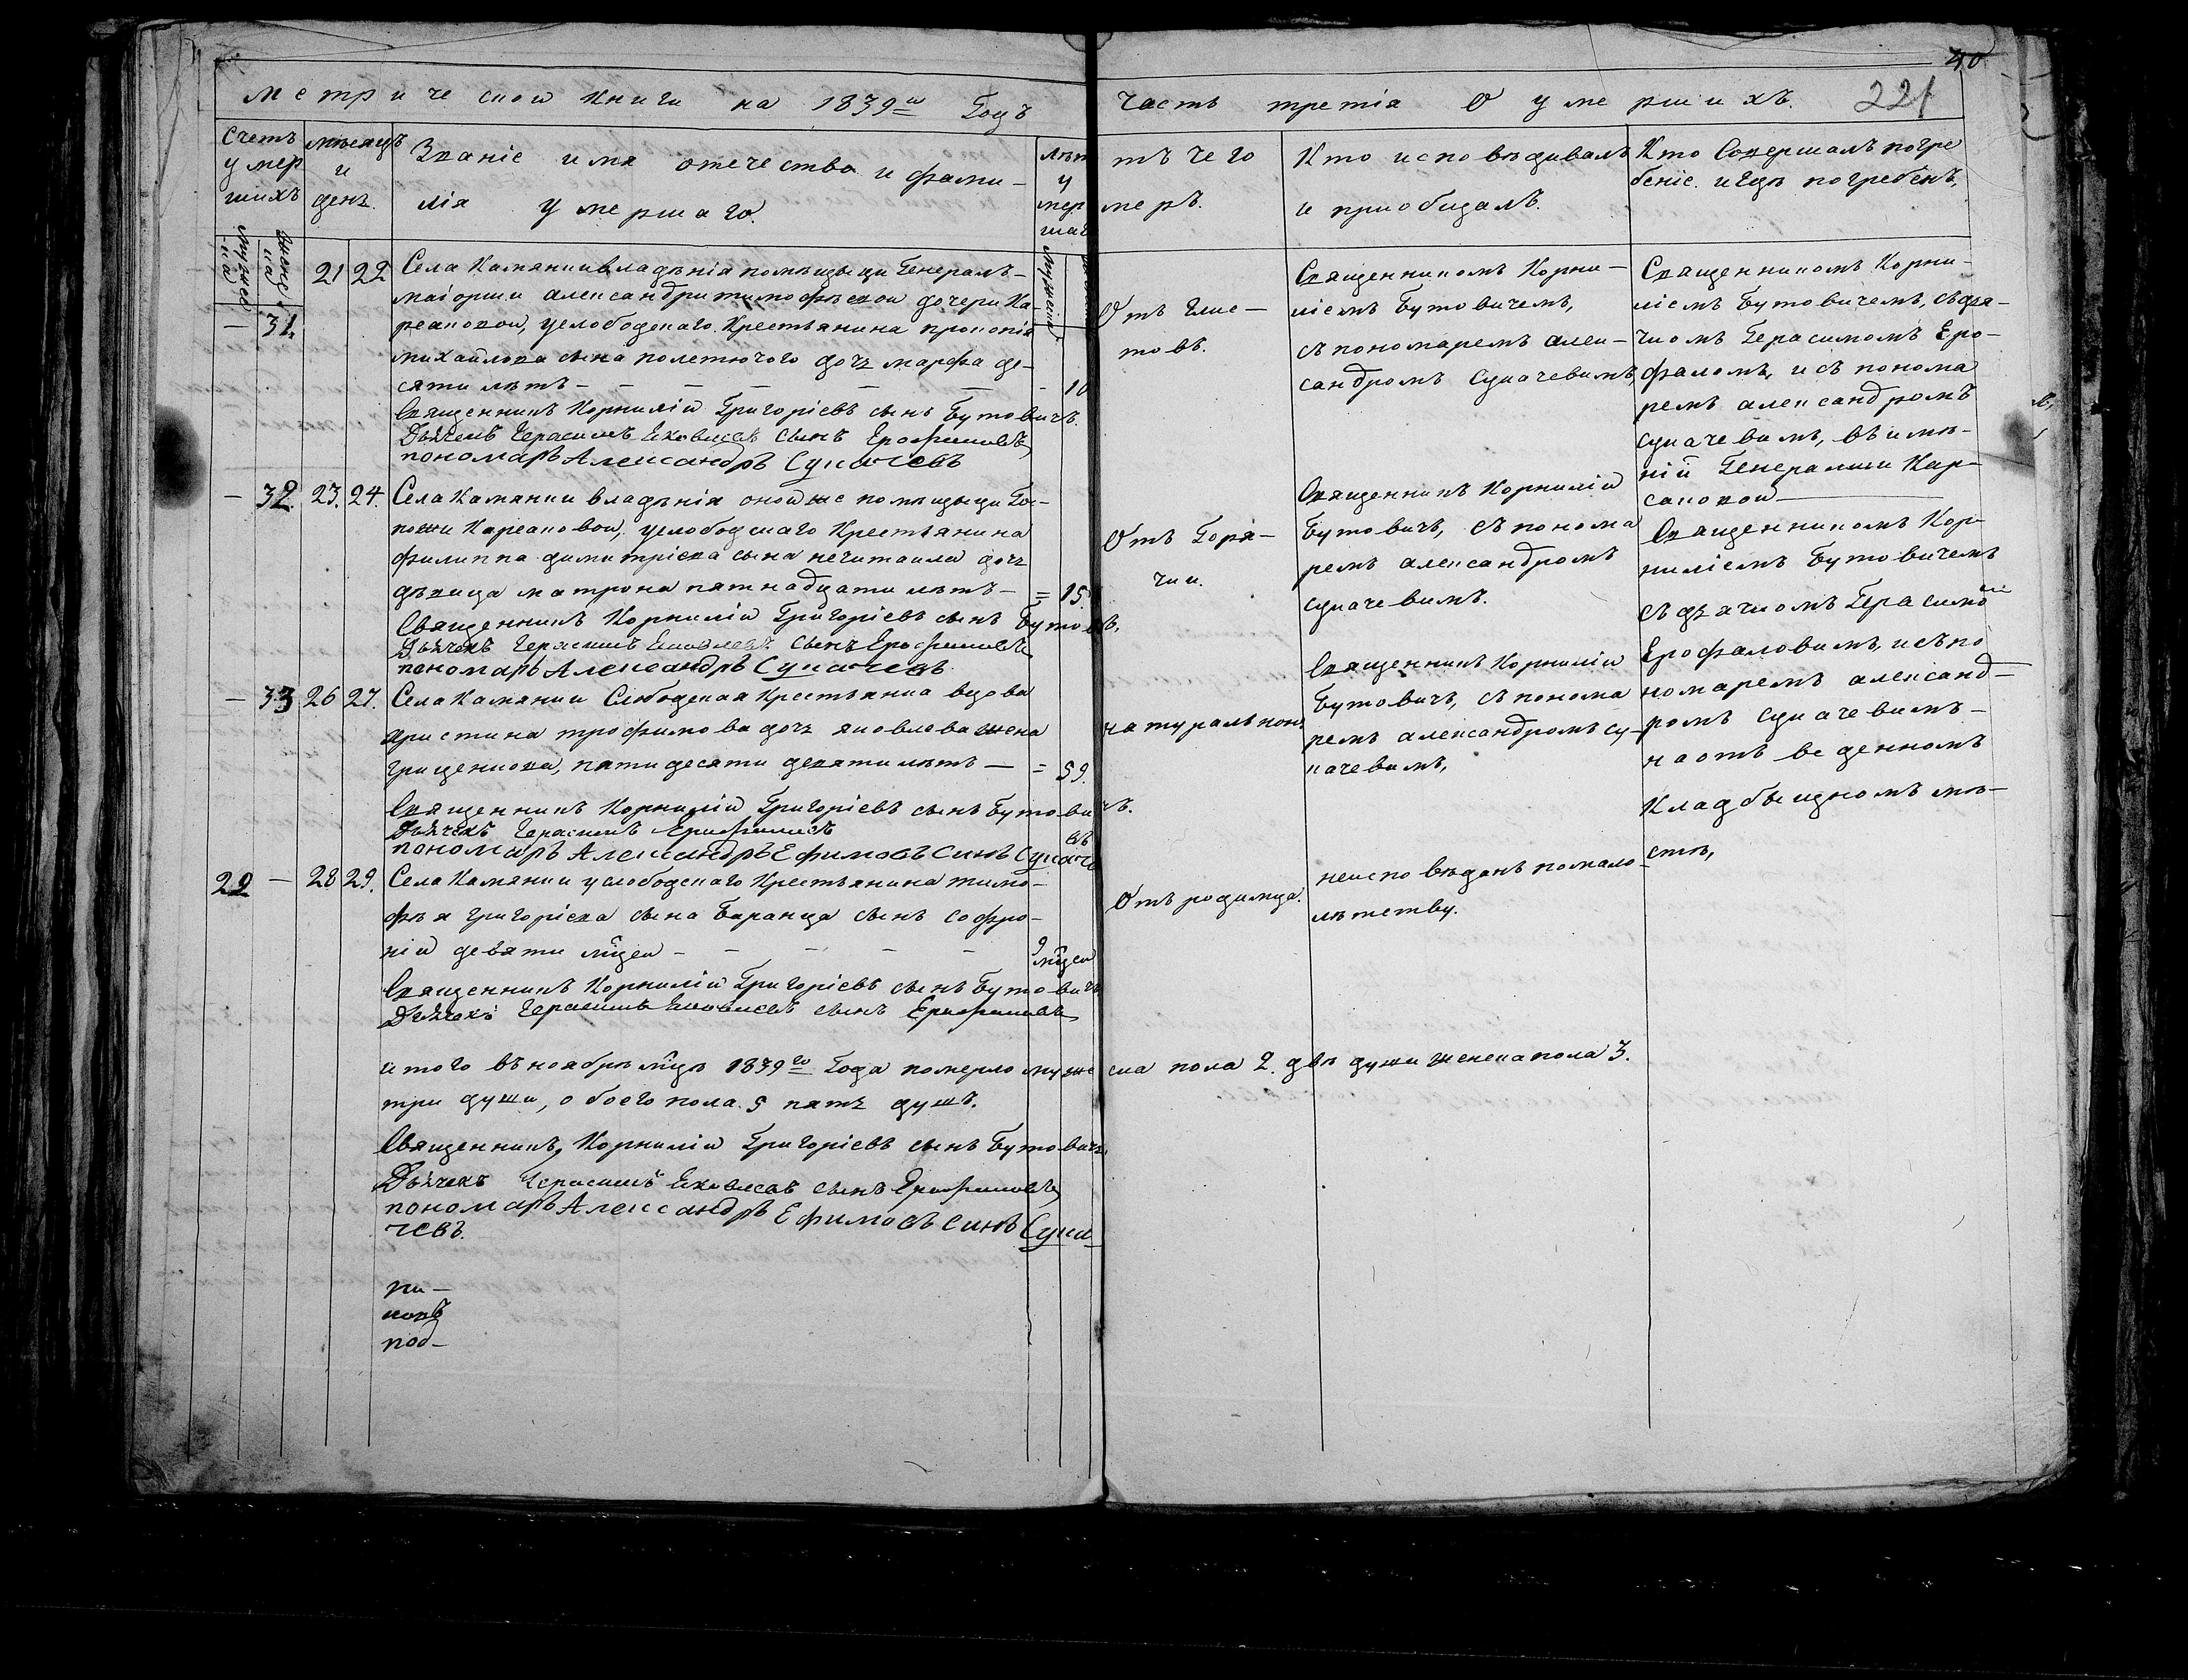 40
Метрической книги на 1839й Годъ
Часть третія О умершихъ.
221
Счетъ
умер
шихъ
мужес
ка
женс
ка
мѣсяцъ
и
день.
Званіе имя отечество и фами-
лія умершаго.
Лѣт
у
мер
шаг
мужеска
тъ чего
меръ.
Кто исповѣдивалъ
и приобщалъ.
Кто Совершалъ погре
беніе. игдѣ погребенъ,
– 31. 21 22
Села Камянки владѣнія помѣщыци Генералъ-
маіорши александри тимофѣевои дочери Ка-
рсаковои, услободского Крестьянина прокопія
михайлова сына полетючого дочь марфа де-
сяти лѣтъ – – – – – – 10
Священникъ Корнилій Григоріевъ сынъ Бутовичъ.
Дьячекъ Герасимъ Яковлевъ сынъ Ерофаловъ
пономаръ Александръ Сукачевъ
Отъ Глис-
товъ.
Священникомъ Корни-
ліемъ Бутовичемъ,
съ пономаремъ алек-
сандромъ Сукачевимъ,
Священникомъ Корни-
ліемъ Бутовичемъ, съ дья-
чкомъ Герасимомъ Еро-
фаломъ, и съ понома
ремъ александромъ
сукачевимъ, въ имѣ-
ніи Генералши Кар-
саковои
– 32. 23. 24.
Села Камянки владѣнія оной же помѣщыци Гос-
пожи Карсаковои, услободскаго Крестьянина
филиппа димитріева сына нечитаила дочь
дѣвица матрона пятнадцати лѣтъ – = 15
Священникъ Корнилій Григоріевъ сынъ Бутовъ,
Дьячекъ Герасимъ Яковлевъ сынъ Ерофаловъ
пономаръ Александръ Сукачевъ
Отъ Горя-
чки.
Священникъ Корнилій
Бутовичъ, съ понома
ремъ александромъ
сукачевимъ.
Священникомъ Кор-
ниліемъ Бутовичемъ
съ дьячкомъ Герасимом
Ерофаловимъ, и съ по
номаремъ александ-
ромъ сукачевимъ-
на отъ веденномъ
Кладбыщномъ мѣ-
стѣ,
– 33 26 27.
Села Камянки Слободская Крестьянка вдова
христина трофимова дочь яковлева жена
грищенкова, пятидесяти девяти лѣтъ – = 59.
Священникъ Корнилій Григоріевъ сынъ Бутовичъ.
Дьячекъ Герасимъ Ерофаловъ
пономаръ Александръ Ефимовъ Синъ Сукачевъ
натуральною
Священникъ Корнилій
Бутовичъ, съ понома
ремъ александромъ су-
качевимъ,
29 – 28 29.
Села Камянки услободского Крестьянина тимо-
фѣя григоріева сына Баранца сынъ софро-
ній девяти мцеи – – – – – 9 мцеи
Священникъ Корнилій Григоріевъ сынъ Бутовичъ
Дьячекъ Герасимъ Яковлевъ сынъ Ерофаловъ
Отъ родимца.
неисповѣданъ помало-
лѣтству.
итого въ ноябрѣ мцѣ 1839го Года померло мужеска пола 2. двѣ души женска пола 3.
три души, обоего пола 5 пять душъ.
Священникъ Корнилій Григоріевъ сынъ Бутовичъ
Дьячекъ Герасимъ Яковлевъ сынъ Ерофаловъ
пономаръ Александръ Ефимовъ Синъ Сука-
чевъ.